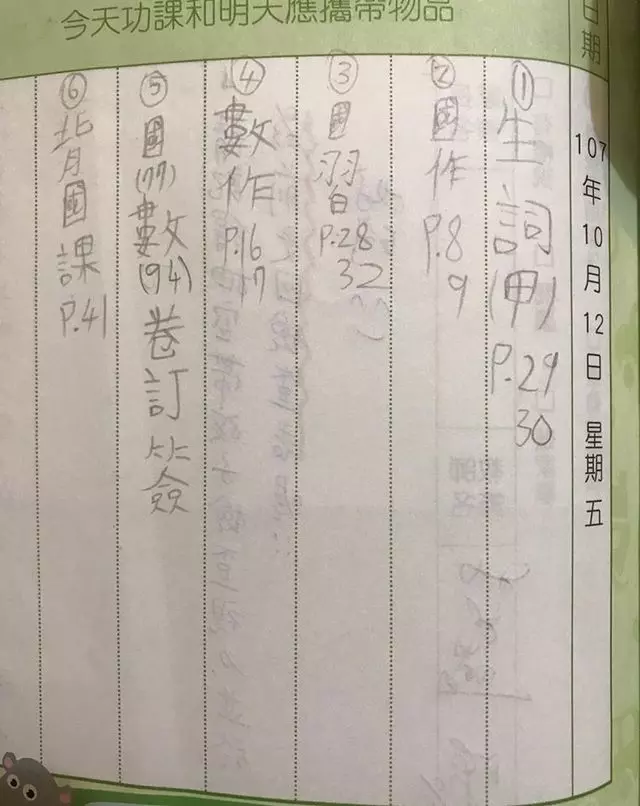 今天功課和明天應攜帶物品
日期
107年10月12日 星期五
①生詞(甲)P.29 30
②國作P.8 9
③國習P.28 32
④數作P.16 17
⑤國(77)數(94)卷訂簽
⑥背國課P.41